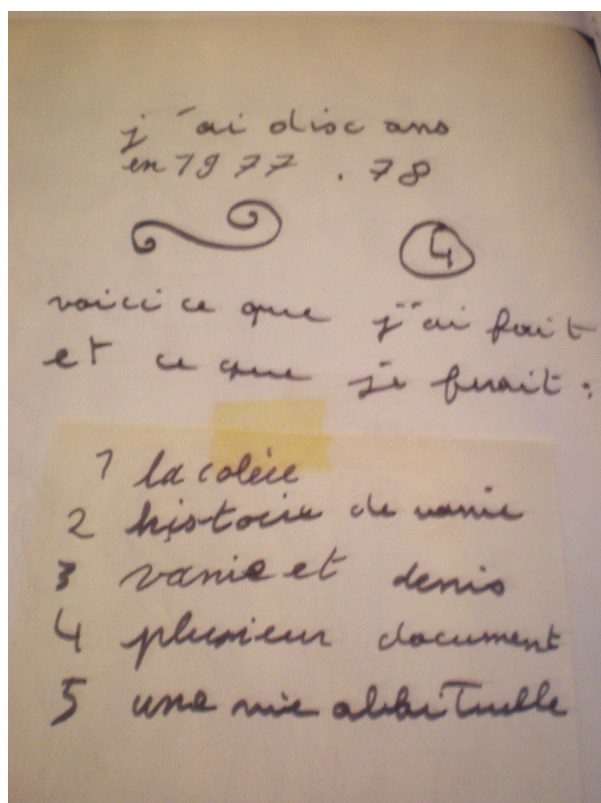 j'ai disc ans
en 1977.78
4
voicice que j'ai fait
et ce que je ferait :
1 la colère
2 histoire de vanie
3 vanie et denis
4 plusieur document
5 une vie abbituelle